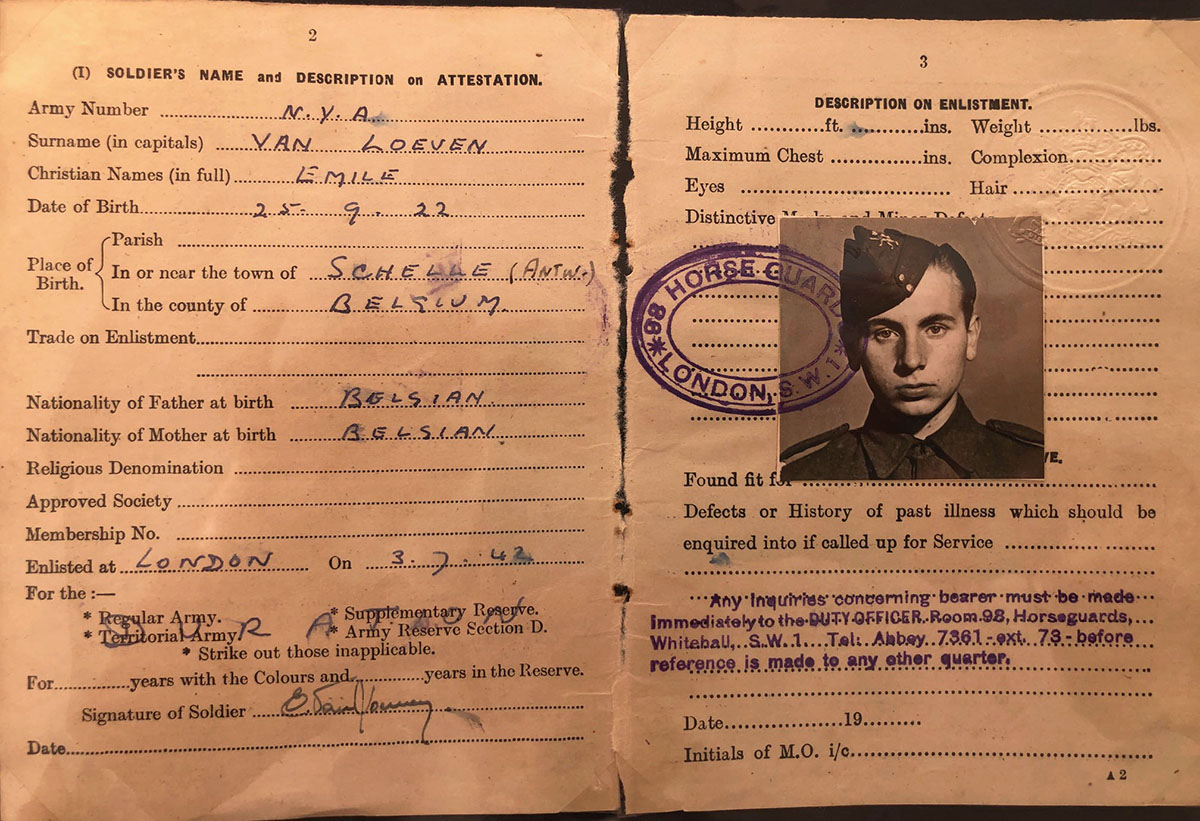 2
(I) SOLDIER'S NAME and DESCRIPTION on ATTESTATION.
Army Number N.Y.A.
Surname (in capitals) VAN LOEVEN
Christian Names (in full) EMILE
Date of Birth 25. 9. 22
Place of Birth.
Parish
In or near the town of SCHELLE (ANTW.)
In the county of BELGIUM.
Trade on Enlistment
Nationality of Father at birth BELGIAN.
Nationality of Mother at birth BELGIAN.
Religious Denomination
Approved Society
Membership No.
Enlisted at LONDON On 3. 7. 42
For the :—
* Regular Army. * Supplementary Reserve.
* Territorial Army * Army Reserve Section D.
DURATION
* Strike out those inapplicable.
For years with the Colours and years in the Reserve.
Signature of Soldier
Date
3
DESCRIPTION ON ENLISTMENT.
Height ft. ins. Weight lbs.
Maximum Chest ins. Complexion
Eyes Hair
Distinctive Marks and Minor Defects
*98 HORSE GUARDS*
LONDON, S.W.1
Found fit for
Defects or History of past illness which should be
enquired into if called up for Service
Any inquiries concerning bearer must be made
immediately to the DUTY OFFICER. Room 98, Horseguards,
Whitehall, S.W.1. Tel: Abbey 7361-ext. 73-before
reference is made to any other quarter.
Date 19
Initials of M.O. i/c
A 2